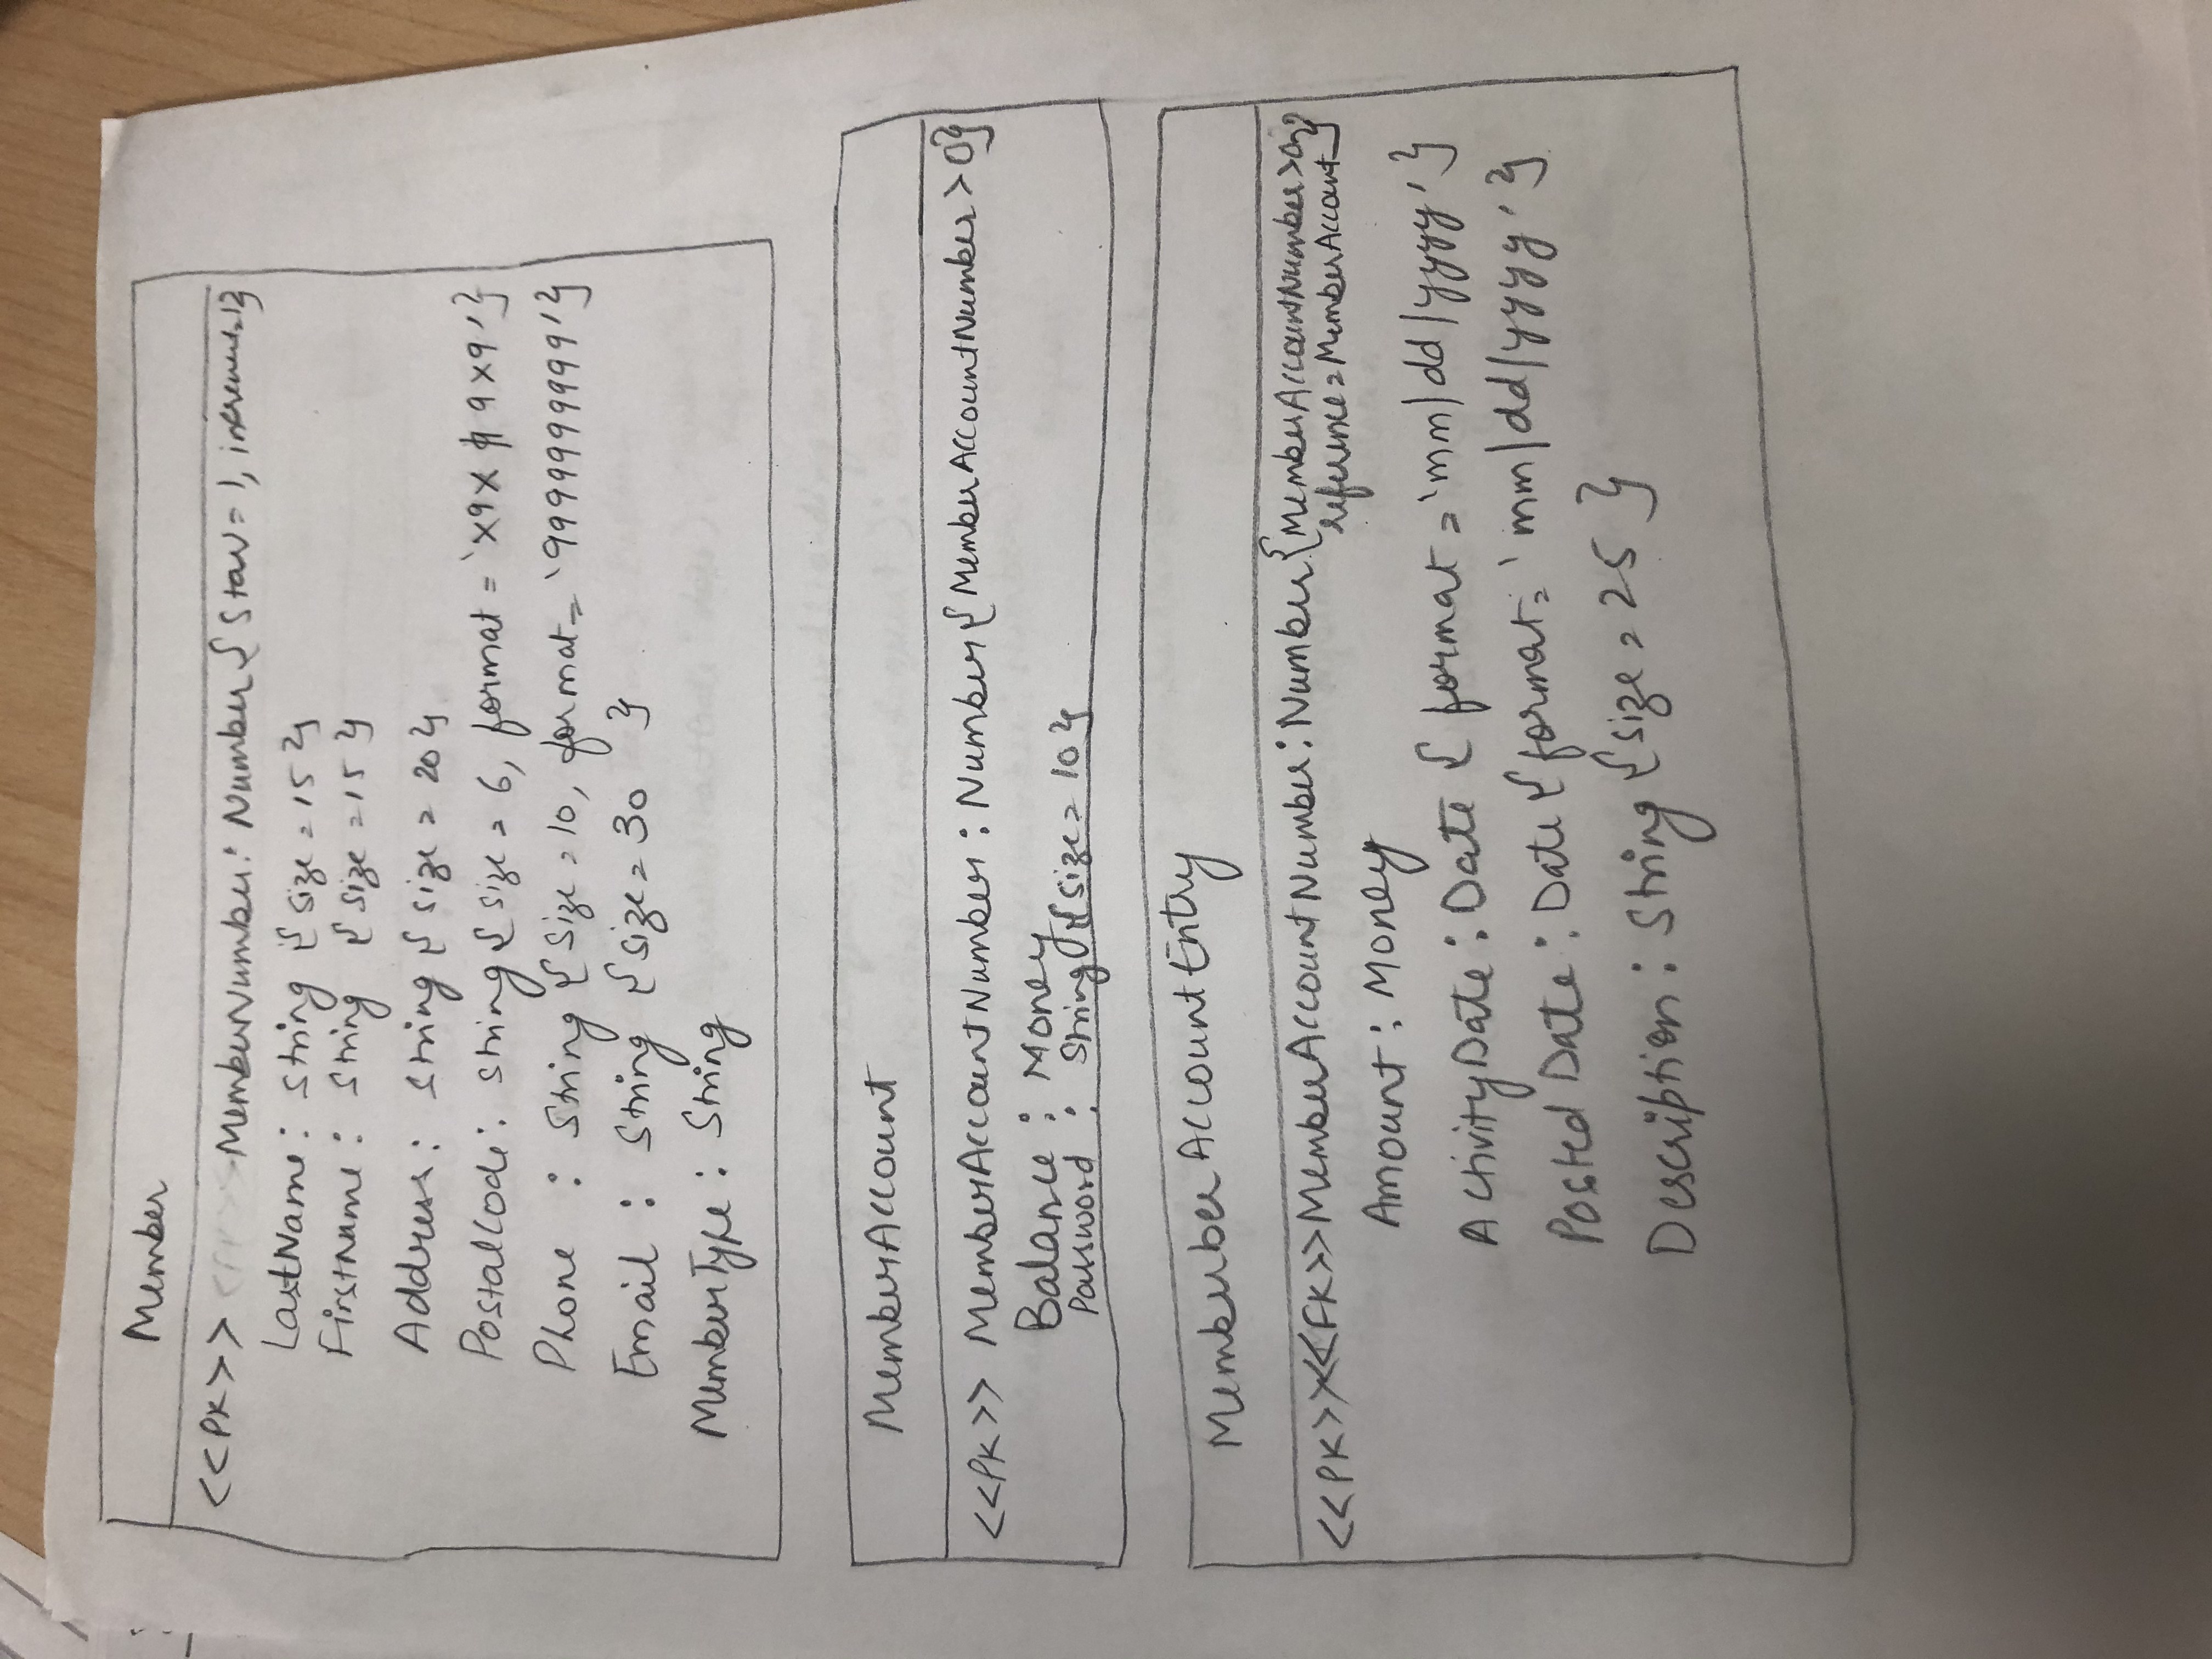 Member
<<PK>> MemberNumber: Number {Start=1, increment=1}
LastName: String {size=15}
Firstname: String {size=15}
Address: String {size=20}
PostalCode: String {size=6, format='X9X 9X9'}
Phone : String {Size=10, format='9999999999'}
Email : String {size=30 }
MemberType: String
MemberAccount
<<PK>> MemberAccountNumber: Number {MemberAccountNumber>0}
Balance: Money
Password : String {size=10}
Memberber AccountEntry
<<PK>><<FK>> MemberAccountNumber: Number {MemberAccountNumber>0
reference=MemberAccount}
Amount: Money
ActivityDate: Date {format='mm/dd/yyyy'}
Posted Date: Date {format='mm/dd/yyyy'}
Description: String {size=25}